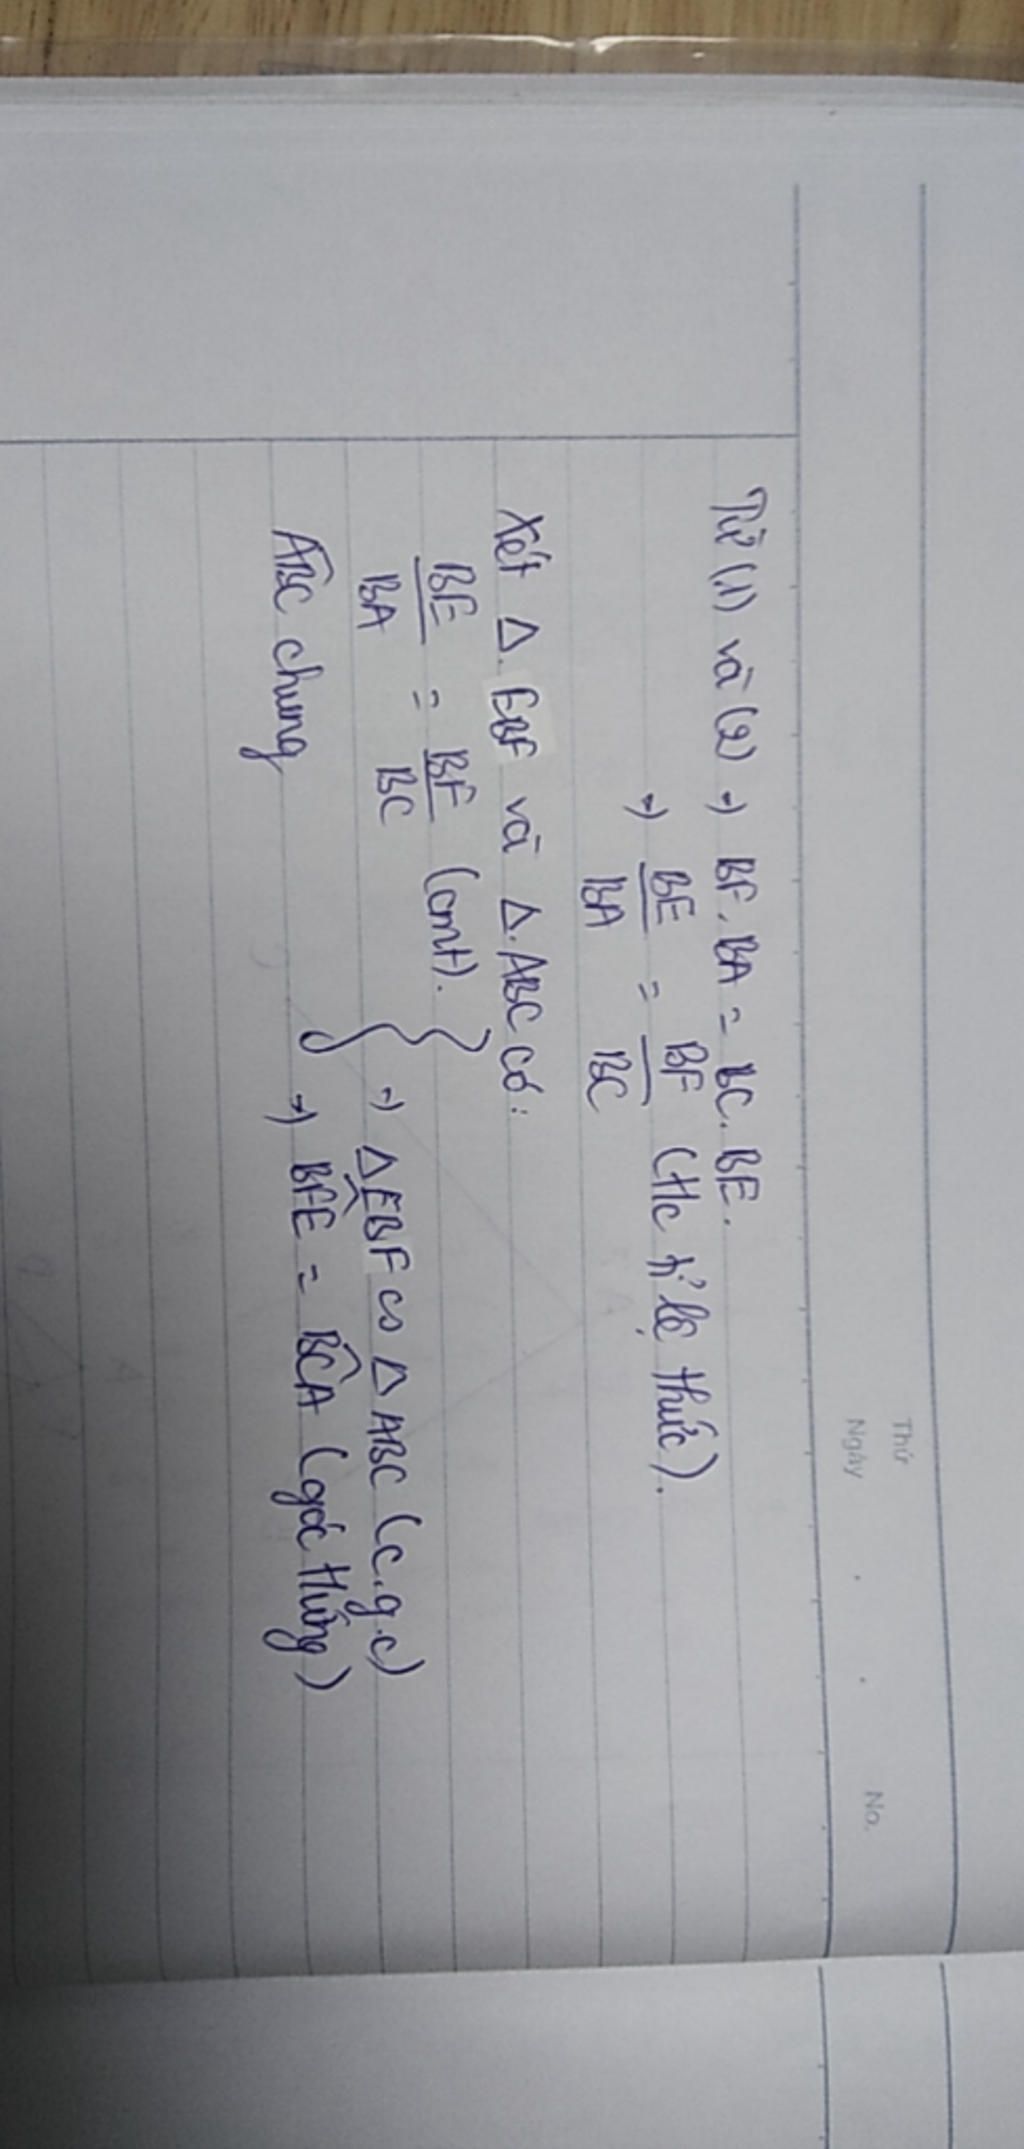 Thứ
Ngày . . No.
Từ (1) và (2) → BF. BA = BC. BE.
→ BE/BA = BF/BC (t/c tỉ lệ thức).
Xét Δ. EBF và Δ. ABC có:
BE/BA = BF/BC (cmt).
ABC chung
→ ΔEBF ∽ Δ ABC (c.g.c)
→ BFE = BCA (góc tứng)